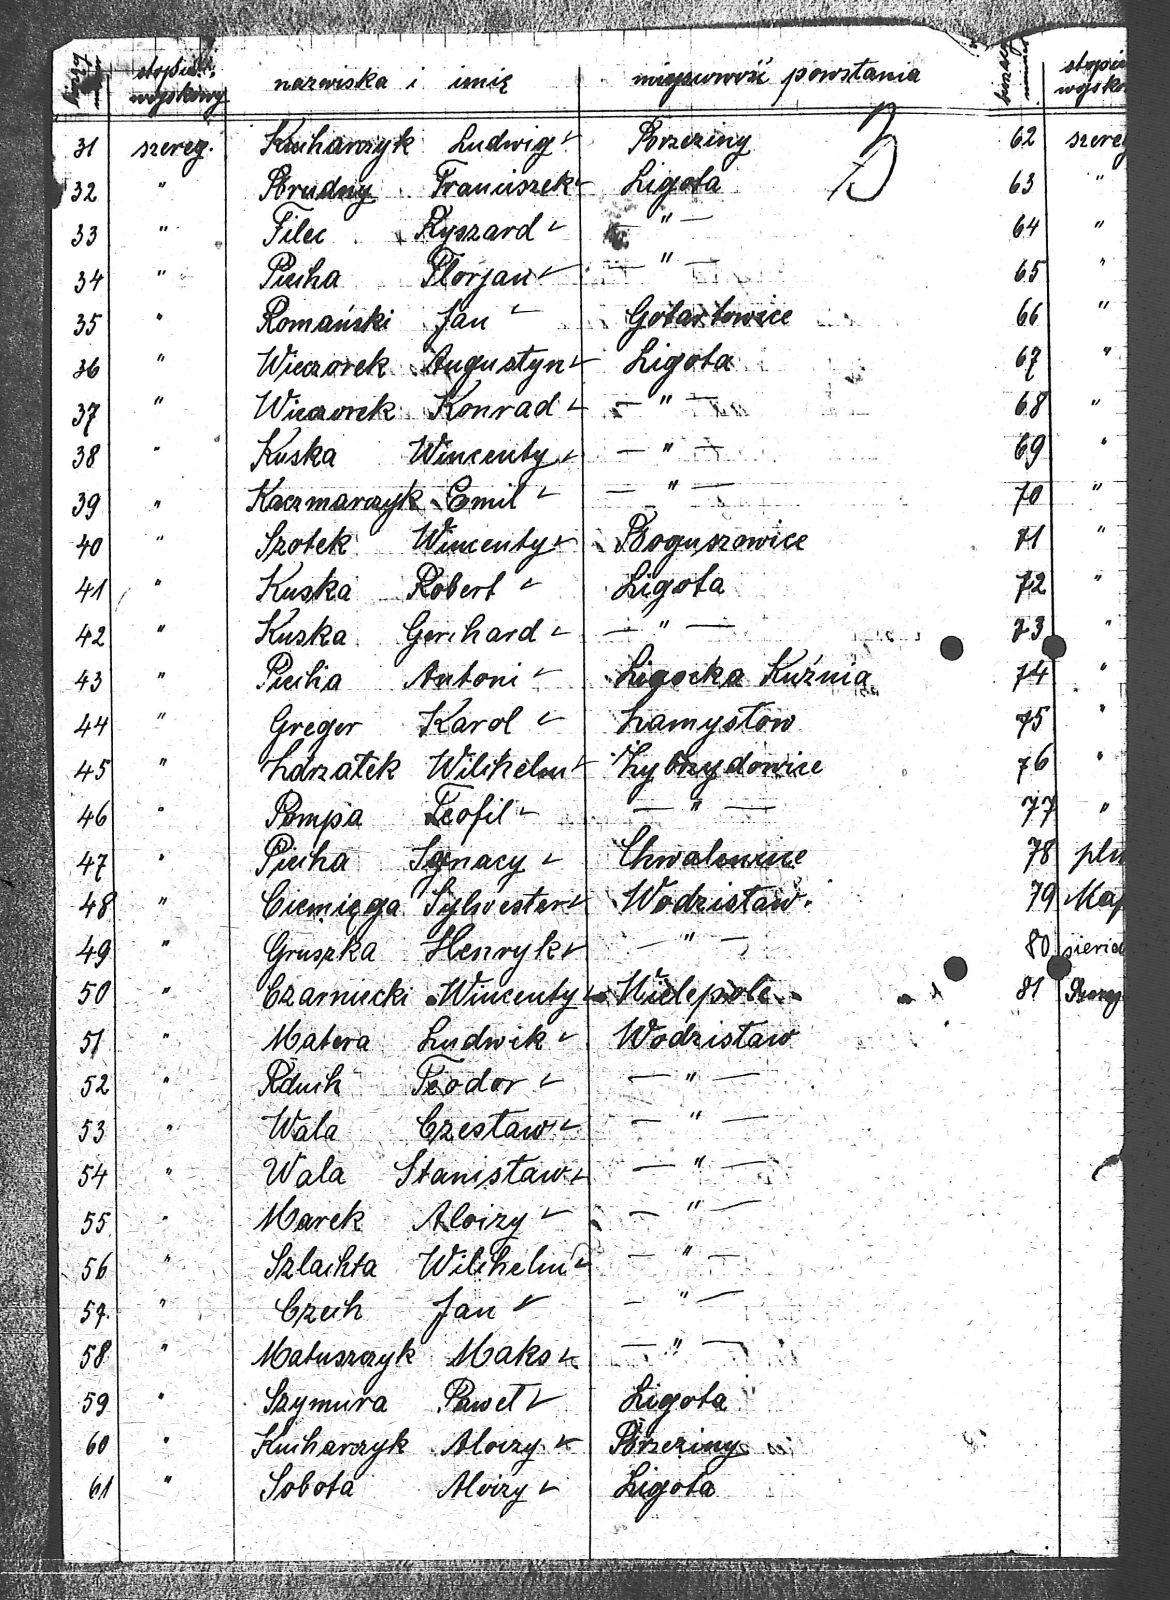 stopień wojskowy nazwiska i imię miejscowość powstania
31 szereg. Kucharczyk Ludwig Brzeziny
32 " Brudny Franciszek Ligota
33 " Filec Ryszard — " —
34 " Piecha Florjan — " —
35 " Romański Jan Gotartowice
36 " Wieczorek Augustyn Ligota
37 " Wieczorek Konrad — " —
38 " Kuska Wincenty — " —
39 " Kaczmarczyk Emil — " —
40 " Szotek Wincenty Boguszowice
41 " Kuska Robert Ligota
42 " Kuska Gerchard — " —
43 " Piecha Antoni Ligocka Kuźnia
44 " Greger Karol Zamysłow
45 " Wilchelm
46 " Pompa Teofil — " —
47 " Piecha Ignacy Chwałowice
48 " Ciemięga Sylwester Wodzisław
49 " Gruszka Henryk — " —
50 " Czarniecki Wincenty Wielepole
51 " Matera Ludwik Wodzisław
52 " Rduch Teodor — " —
53 " Wala Czesław — " —
54 " Wala Stanisław — " —
55 " Marek Aloizy — " —
56 " Szlachta Wilchelm — " —
57. " Czech Jan — " —
58 " Matuszczyk Maks — " —
59 " Szymura Paweł Ligota
60 " Kucharczyk Aloizy Brzeziny
61 " Sobota Aloizy Ligota
stopień wojsko
62 szereg
63 "
64 "
65 "
66 "
67 "
68 "
69 "
70 "
71 "
72 "
73 "
74 "
75 "
76 "
77 "
78 plu
79
80
81